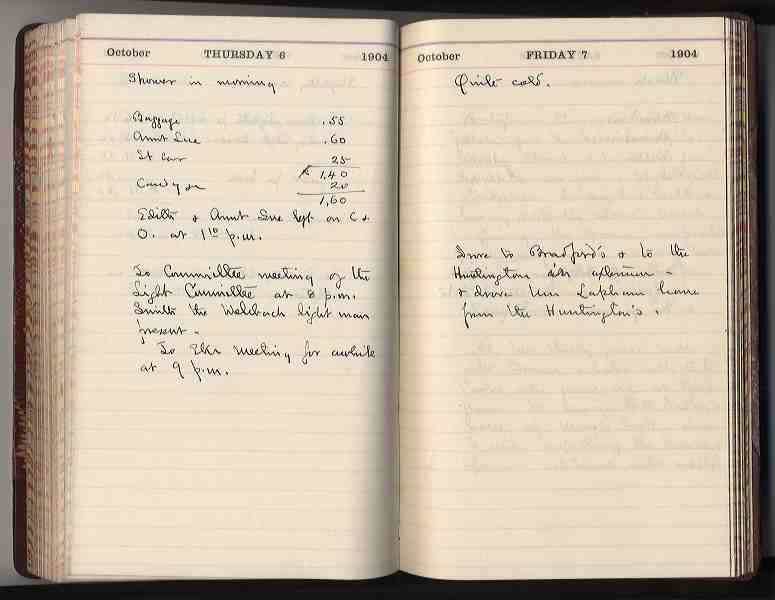 October THURSDAY 6 1904
Shower in morning
Baggage .55
Aunt Sue .60
St Car 25
1,40
Candy 20
1,60
Edith & Aunt Sue left on C &
O. at 1 10 p.m.
To Committee meeting of the
Light Committee at 8 p.m.
Smith the Welsbach light man
present -
To Elks meeting for awhile
at 9 p.m.
October FRIDAY 7 1904
Quite cold.
Drove to Bradford's & to the
Huntingtons in afternoon -
& drove home
from the Huntington's.